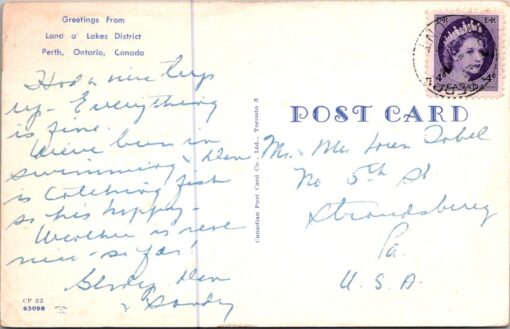 Greetings From
Land o' Lakes District
Perth, Ontario, Canada
Had a nice trip
up - Everything
is fine.
We've been in
swimming & Den
is catching fish
so his happy -
Weather is real
nice - so far!
Den
& Sandy
CP 22
63098
Canadian Post Card Co., Ltd., Toronto 3
POST CARD
Mr. & Mrs. Loren Tobel
No 5th St
Stroudsberg
Pa.
U.S.A.
CANADA